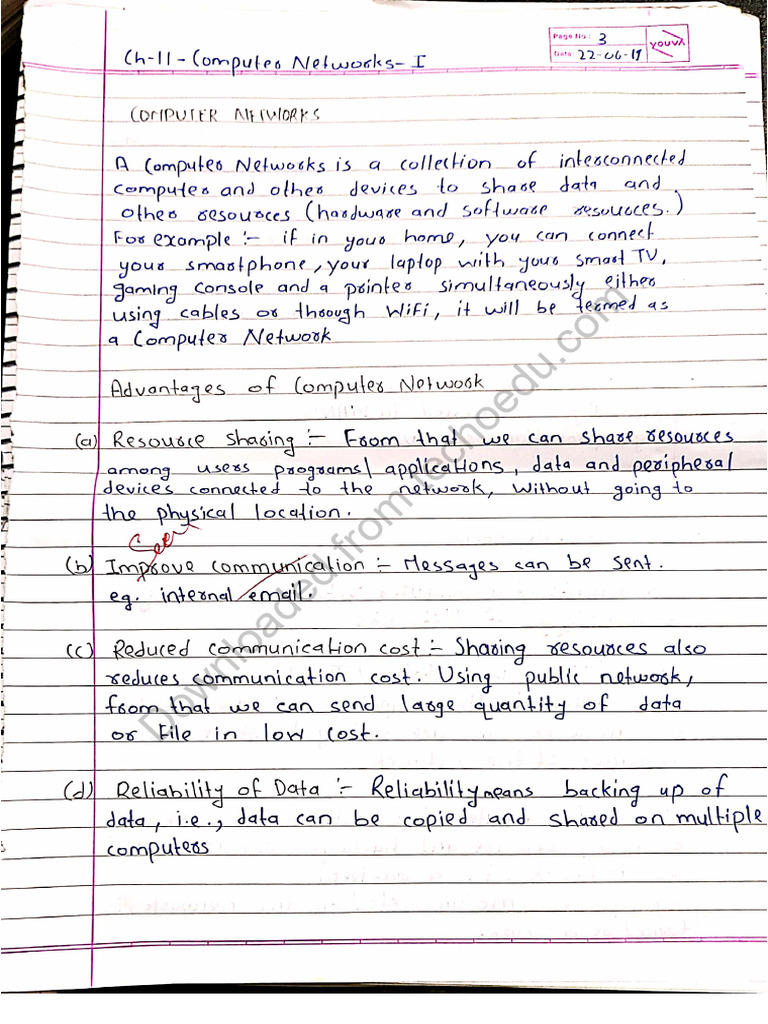 Page No.: 3
Date: 22-06-19
YOUVA
Ch-11 - Computer Networks - I
COMPUTER NETWORKS
A Computer Networks is a collection of interconnected
computer and other devices to share data and
other resources (hardware and software resources.)
For example :- if in your home, you can connect
your smartphone, your laptop with your smart TV,
gaming console and a printer simultaneously either
using cables or through WiFi, it will be termed as
a Computer Network
Advantages of Computer Network
(a) Resource sharing :- From that we can share resources
among users programs/ applications, data and peripheral
devices connected to the network, without going to
the physical location.
Seen
(b) Improve communication :- Messages can be sent.
eg. internal email.
(c) Reduced communication cost :- Sharing resources also
reduces communication cost. Using public network,
from that we can send large quantity of data
or File in low cost.
(d) Reliability of Data :- Reliability means backing up of
data, i.e., data can be copied and shared on multiple
computers
Downloaded from techoedu.com